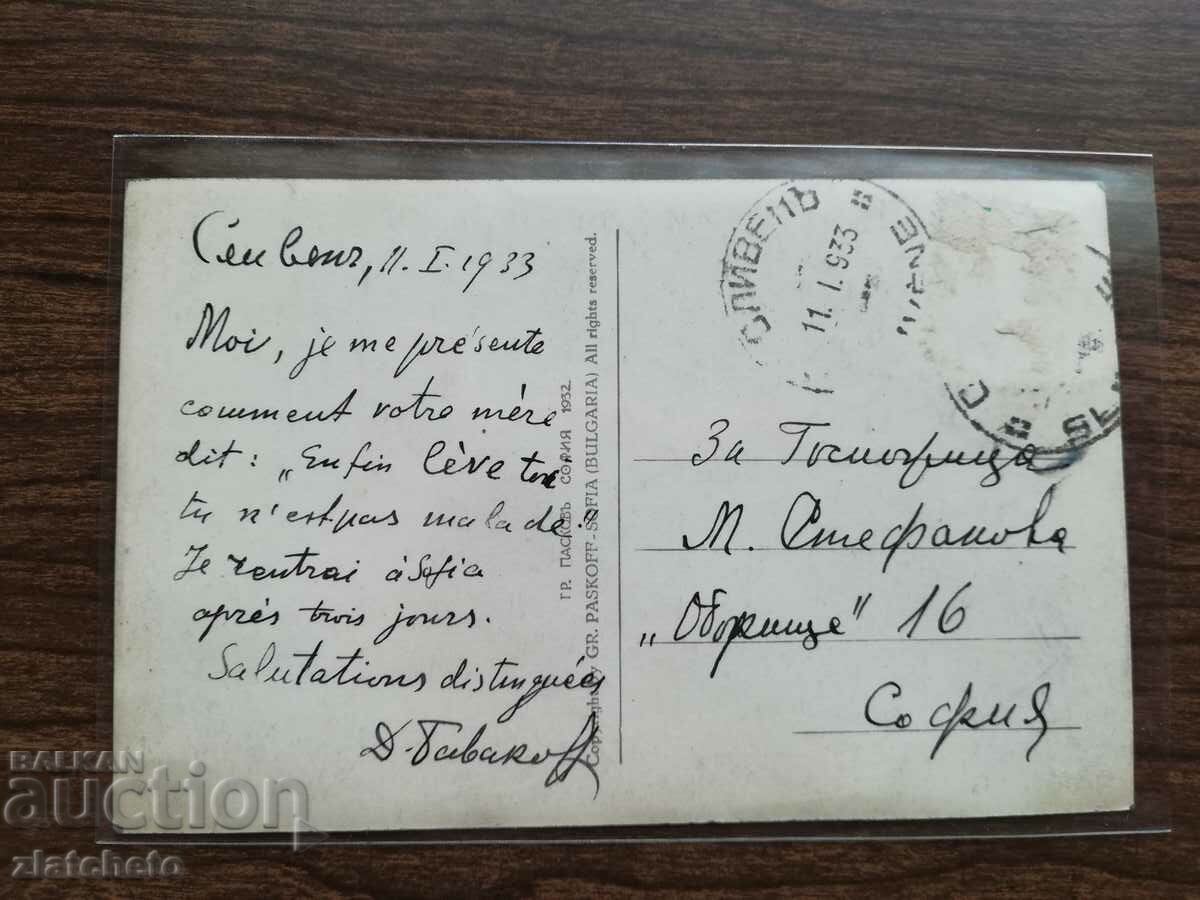 Сливенъ, 11.I.1933
Moi, je me présente
comment votre mère
dit: „Enfin lève toi
tu n'est pas malade."
Je rentrai à Sofia
après trois jours.
Salutations distinguées
ГР. ПАСКОВЪ СОФИЯ 1932.
Copyright by GR. PASKOFF-SOFIA (BULGARIA) All rights reserved.
СЛИВЕНЪ
11.I.933
За Госпожица
М. Стефанова
„Оборище" 16
София
BALKAN
auction
zlatcheto